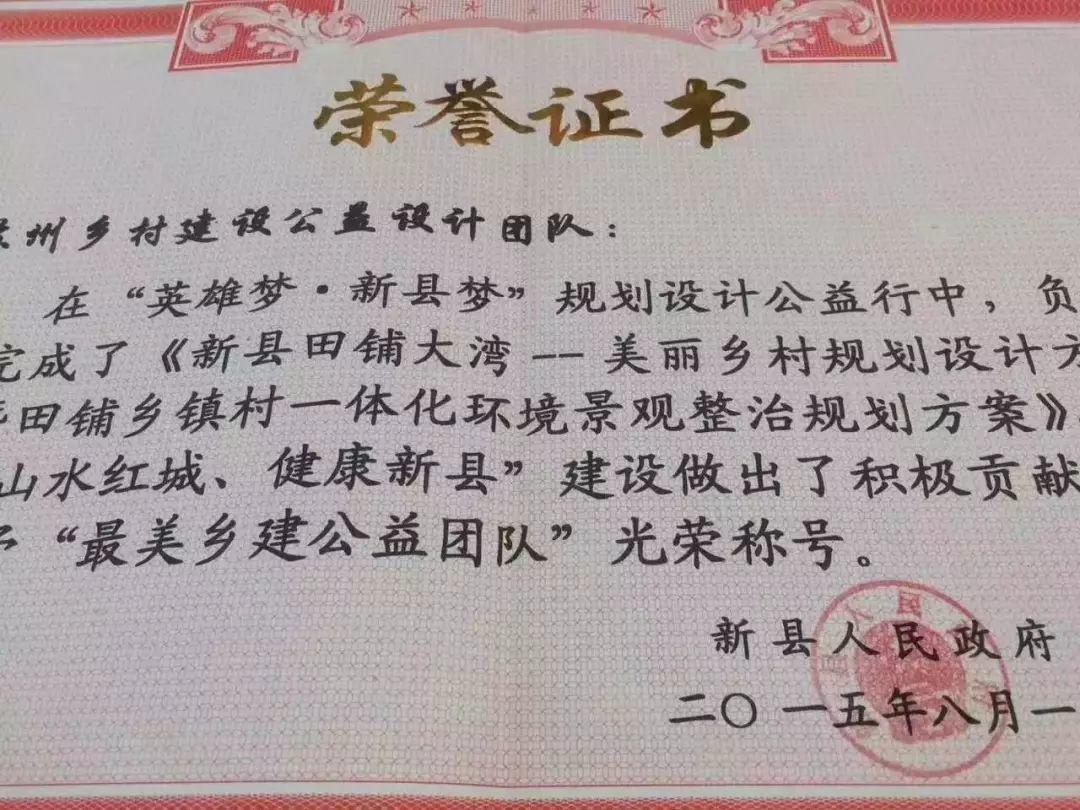 荣誉证书
州乡村建设公益设计团队：
在“英雄梦·新县梦”规划设计公益行中，负
完成了《新县田铺大湾--美丽乡村规划设计方
田铺乡镇村一体化环境景观整治规划方案》
山水红城、健康新县”建设做出了积极贡献
“最美乡建公益团队”光荣称号。
新县人民政府
二〇一五年八月一